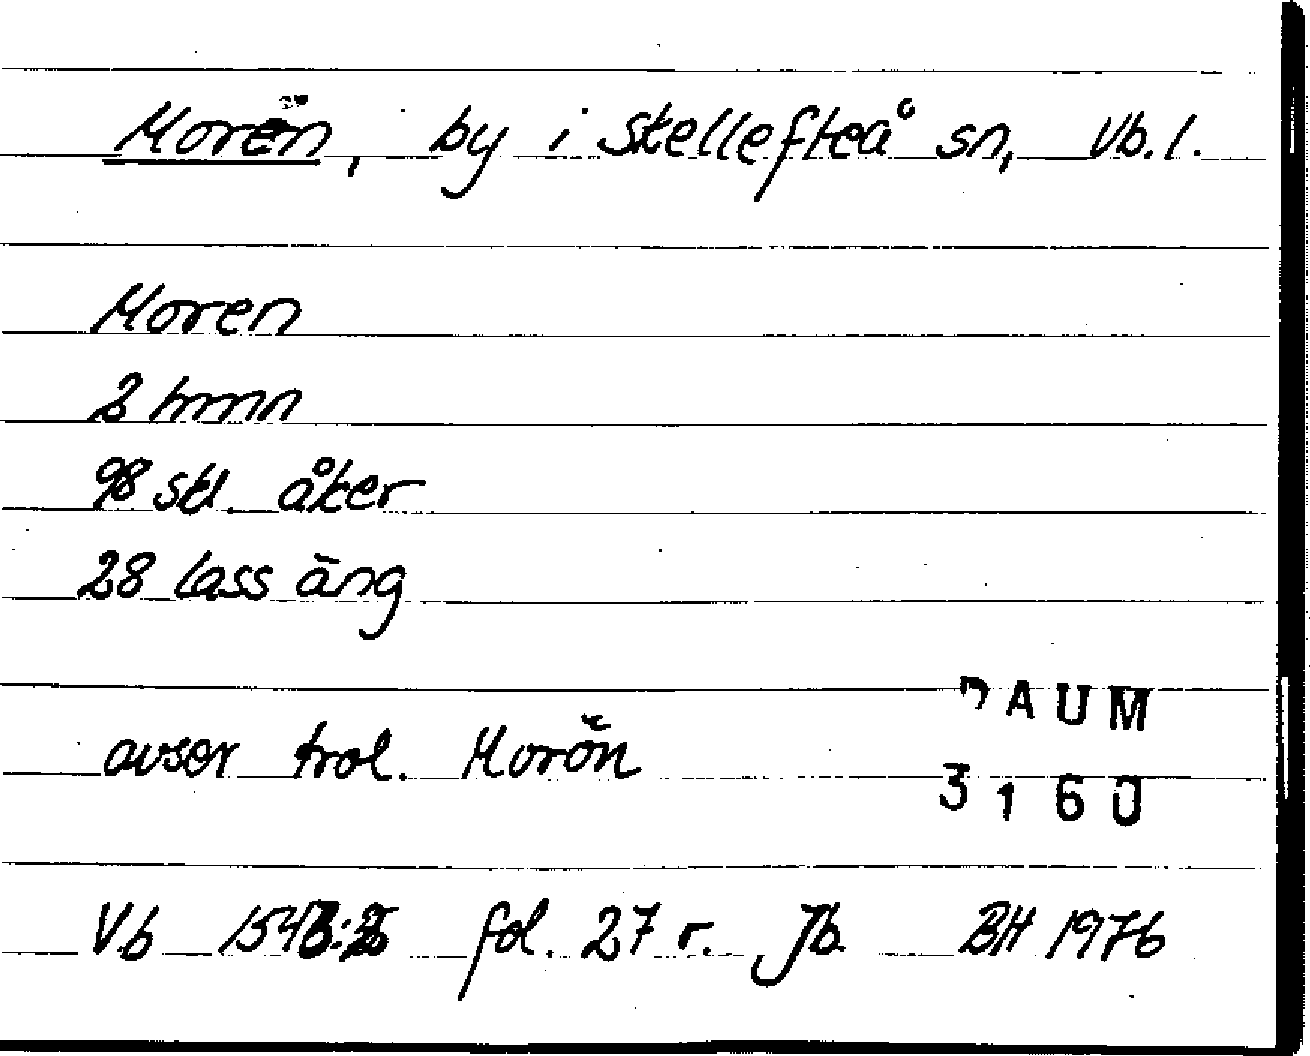 Morön, by i Skellefteå sn, Vb. l.
Moren
2 hmn
98 skl. åker
28 lass äng
DAUM
avser trol. Morön
3160
Vb fol. 27 r. Jb. BH 1976